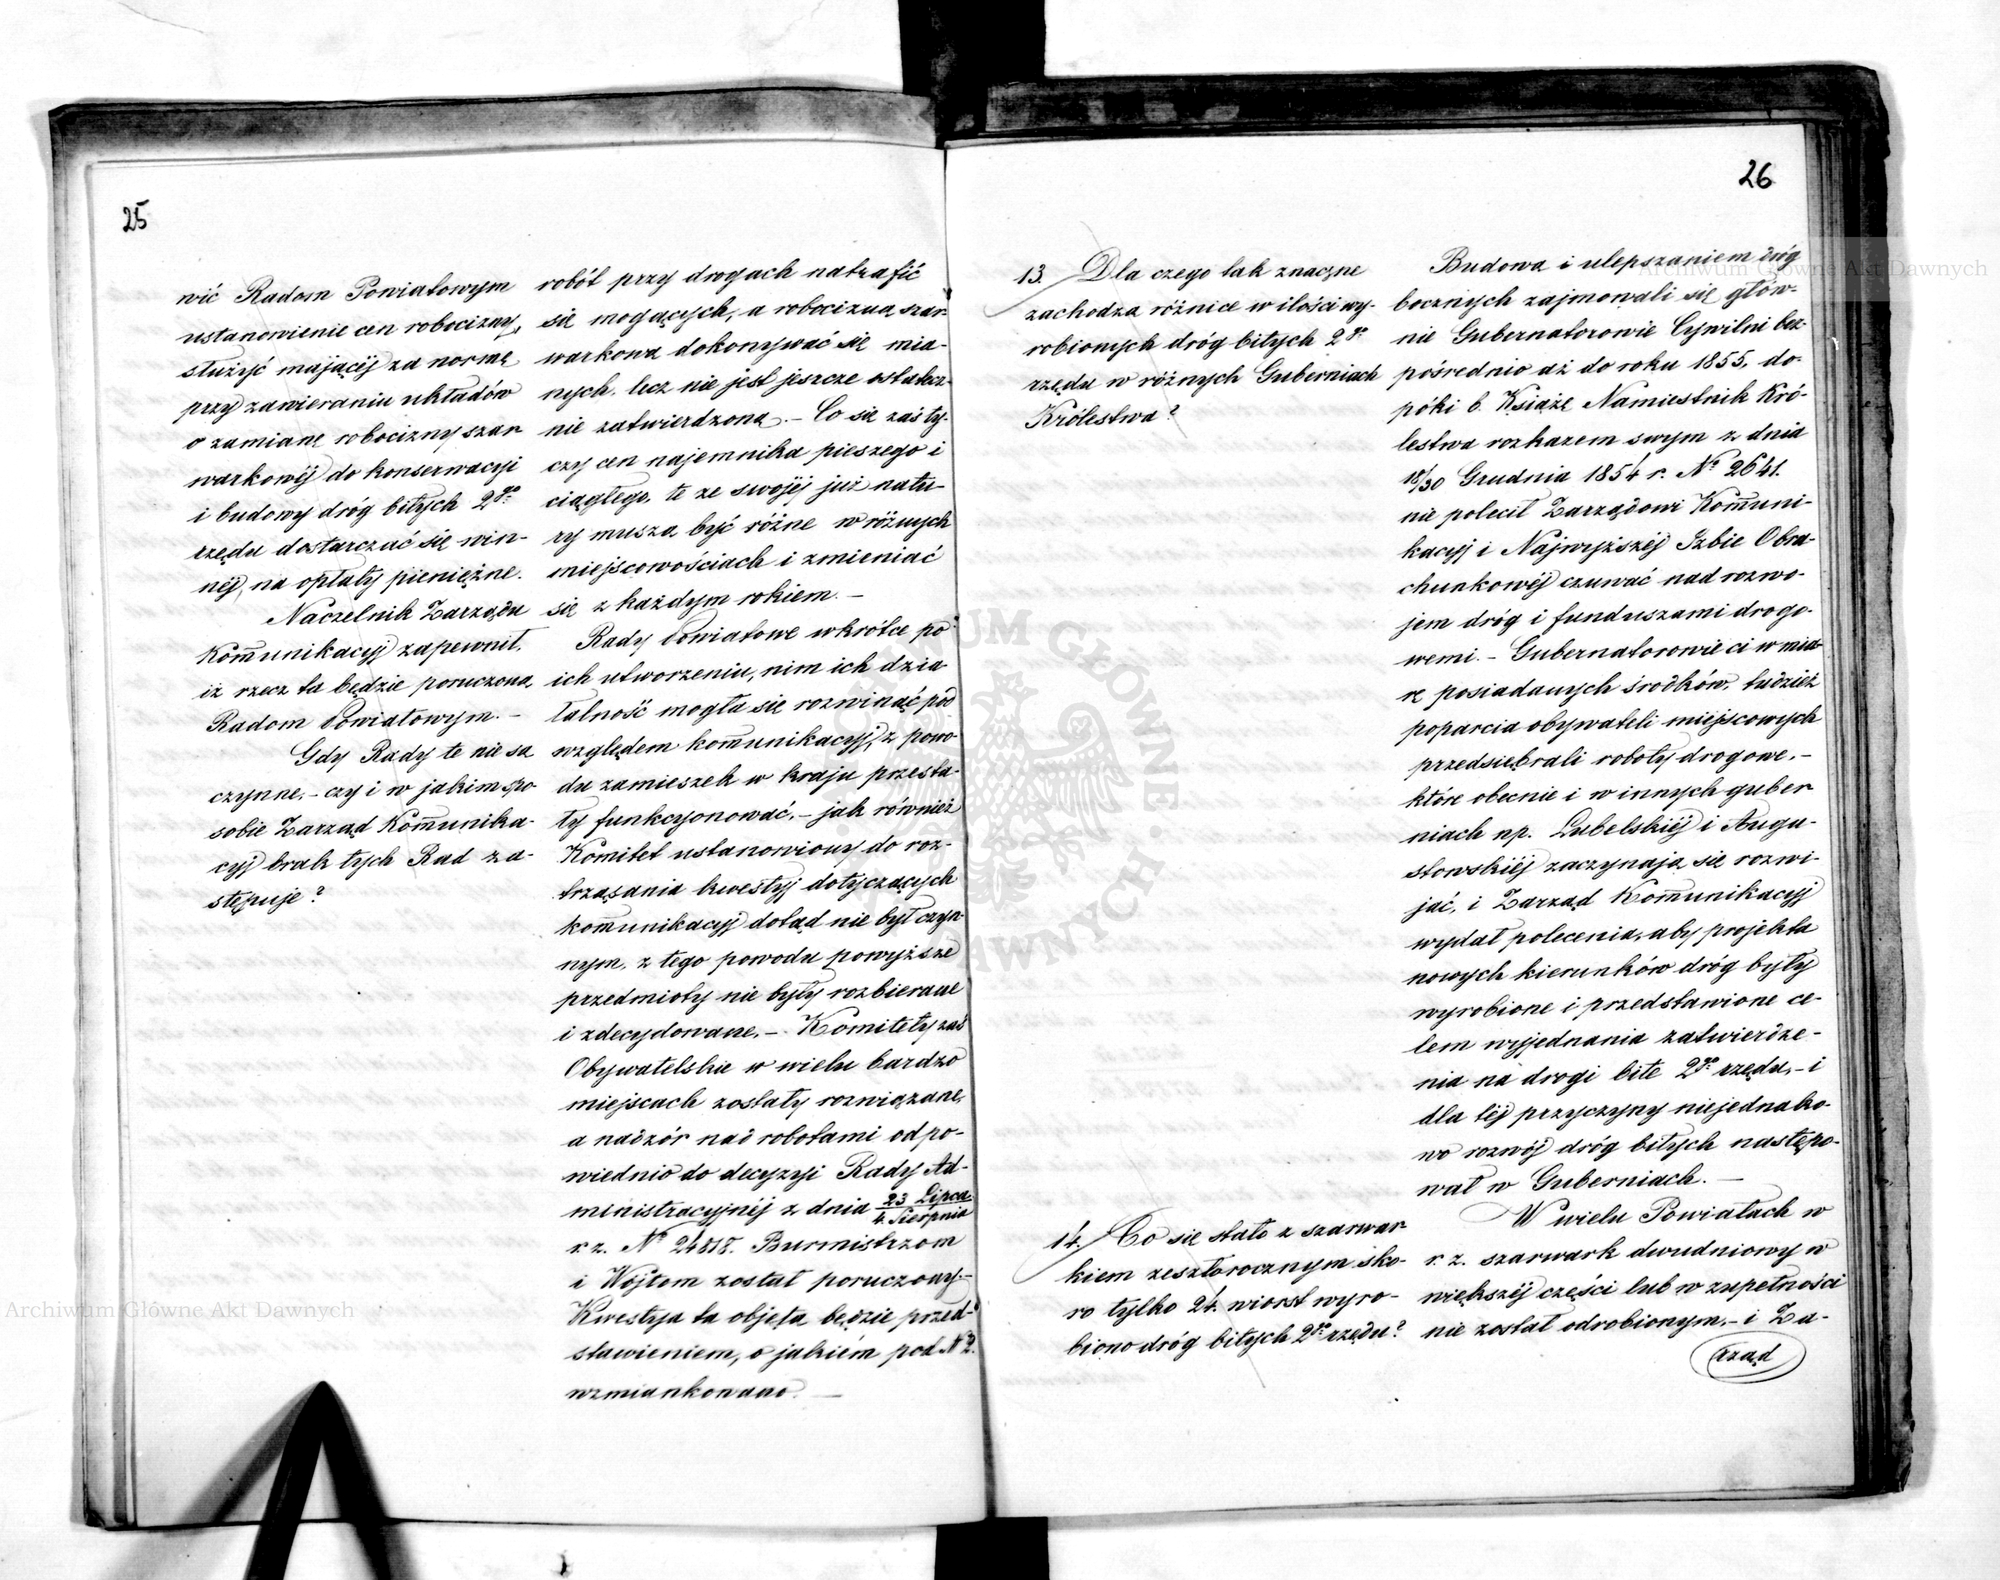 25
wić Radom Powiatowym
ustanowienie cen robocizny,
służyć mającéj za normę
przy zawieraniu układów
o zamianę robocizny szar
warkowéj do konserwacyi
i budowy dróg bitych 2go
rzędu dostarczać się win-
néj, na opłaty pieniężne.
Naczelnik Zarządu
Kommunikacyj zapewnił,
iż rzecz ta będzie poruczoną
Radom Powiatowym. -
Gdy Rady te nie są
czynne, - czy i w jakim spo
sobie Zarząd Kommunika-
cyj brak tych Rad za-
stępuje?
robót przy drogach natrafić
się mogących, a robocizną szar
warkową dokonywać się mia-
nych, lecz nie jest jeszcze ostatecz-
nie zatwierdzoną. - Co się zaś ty-
czy cen najemnika pieszego i
ciągłego, te ze swojéj już natu-
ry muszą być różne w różnych
miejscowościach i zmieniać
się z każdym rokiem. -
Rady Powiatowe wkrótce po
ich utworzeniu, nim ich dzia-
łalność mogła się rozwinąć pod
względem kommunikacyj, z powo-
du zamieszek w kraju przesta-
ły funkcyonować, - jak również
Komitet ustanowiony do roz-
trząsania kwestyj dotyczących
kommunikacyj dotąd nie był czyn-
nym, z tego powodu powyższe
przedmioty nie były rozbierane
i zdecydowane. - Komitety zaś
Obywatelskie w wielu bardzo
miejscach zostały rozwiązane,
a nadzór nad robotami odpo-
wiednio do decyzyi Rady Ad-
ministracyjnéj z dnia 23 Lipca / 4 Sierpnia
r. z. No 24818. Burmistrzom
i Wójtom został poruczony. -
Kwestya ta objęta będzie przed-
stawieniem, o jakiém pod No 2.
wzmiankowano. -
26
13. Dla czego tak znaczne
zachodzą różnice w ilości wy-
robionych dróg bitych 2go
rzędu w różnych Guberniach
Królestwa?
14. Co się stało z szarwar
kiem zeszłorocznym sko-
ro tylko 24. wiorst wyro-
biono dróg bitych 2go rzędu?
Budową i ulepszaniem dróg
bocznych zajmowali się głów-
nie Gubernatorowie Cywilni bez-
pośrednio aż do roku 1855, do-
póki b. Książę Namiestnik Kró-
lestwa rozkazem swym z dnia
18/30 Grudnia 1854 r. No 2641.
nie polecił Zarządowi Kommuni-
kacyj i Najwyższéj Izbie Obra-
chunkowéj czuwać nad rozwo-
jem dróg i funduszami drogo-
wemi. - Gubernatorowie ci w mia-
rę posiadanych środków, tudzież
poparcia obywateli miejscowych
przedsiębrali roboty drogowe, -
które obecnie i w innych guber
niach np. Lubelskiéj i Augu-
stowskiéj zaczynają się rozwi-
jać, i Zarząd Kommunikacyj
wydał polecenia, aby projekta
nowych kierunków dróg były
wyrobione i przedstawione ce-
lem wyjednania zatwierdze-
nia na drogi bite 2go rzędu, - i
dla téj przyczyny niejednako-
wo rozwój dróg bitych następo-
wał w Guberniach. -
W wielu Powiatach w
r. z. szarwark dwudniowy w
większéj części lub w zupełności
nie został odrobionym, - i Za-
rząd